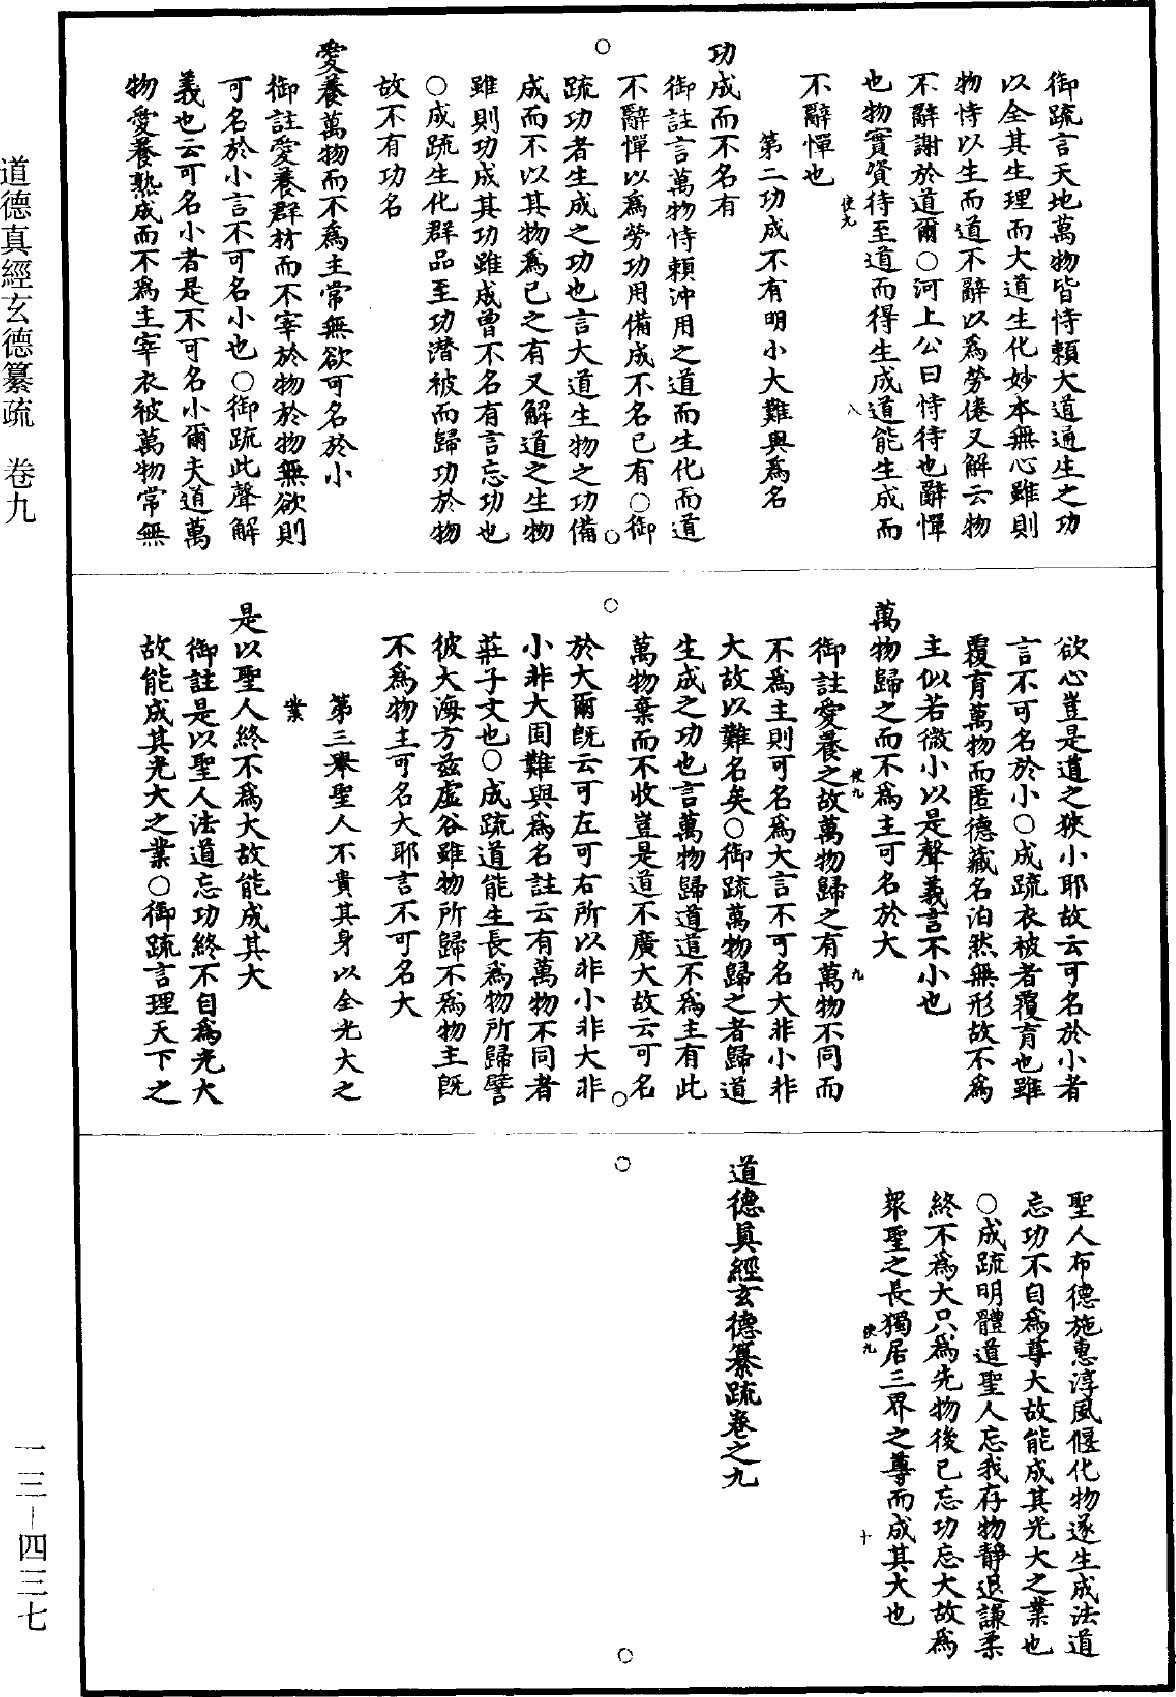 御疏言天地萬物皆恃賴大道通生之功
以全其生理而大道生化妙本無心雖則
物恃以生而道不辭以爲勞倦又解云物
不辭謝於道爾○河上公曰恃待也辭憚
也物實資待至道而得生成道能生成而
不辭憚也
第二功成不有明小大難與爲名
功成而不名有
御註言萬物恃賴沖用之道而生化而道
不辭憚以爲勞功用備成不名已有○御
疏功者生成之功也言大道生物之功備
成而不以其物爲已之有又解道之生物
雖則功成其功雖成曾不名有言忘功也
○成疏生化群品至功潛被而歸功於物
故不有功名
愛養萬物而不爲主常無欲可名於小
御註愛養群材而不宰於物於物無欲則
可名於小言不可名小也○御疏此聲解
義也云可名小者是不可名小爾夫道萬
物愛養熟成而不爲主宰衣被萬物常無
欲心豈是道之狹小耶故云可名於小者
言不可名於小○成疏衣被者覆育也雖
覆育萬物而匿德藏名泊然無形故不爲
主似若微小以是聲義言不小也
萬物歸之而不爲主可名於大
御註愛養之故萬物歸之有萬物不同而
不爲主則可名爲大言不可名大非小非
大故以難名矣○御疏萬物歸之者歸道
生成之功也言萬物歸道道不爲主有此
萬物棄而不收豈是道不廣大故云可名
於大爾旣云可左可右所以非小非大非
小非大固難與爲名註云有萬物不同者
莊子文也○成疏道能生長爲物所歸譬
彼大海方茲虛谷雖物所歸不爲物主旣
不爲物主可名大耶言不可名大
第三舉聖人不貴其身以全光大之
業
是以聖人終不爲大故能成其大
御註是以聖人法道忘功終不自爲光大
故能成其光大之業○御疏言理天下之
聖人布德施惠淳風偃化物遂生成法道
忘功不自爲尊大故能成其光大之業也
○成疏明體道聖人忘我存物靜退謙柔
終不爲大只爲先物後已忘功忘大故爲
衆聖之長獨居三界之尊而成其大也
道德眞經玄德纂疏卷之九
道德真經玄德纂疏　卷九
一三－四三七
八
九
十